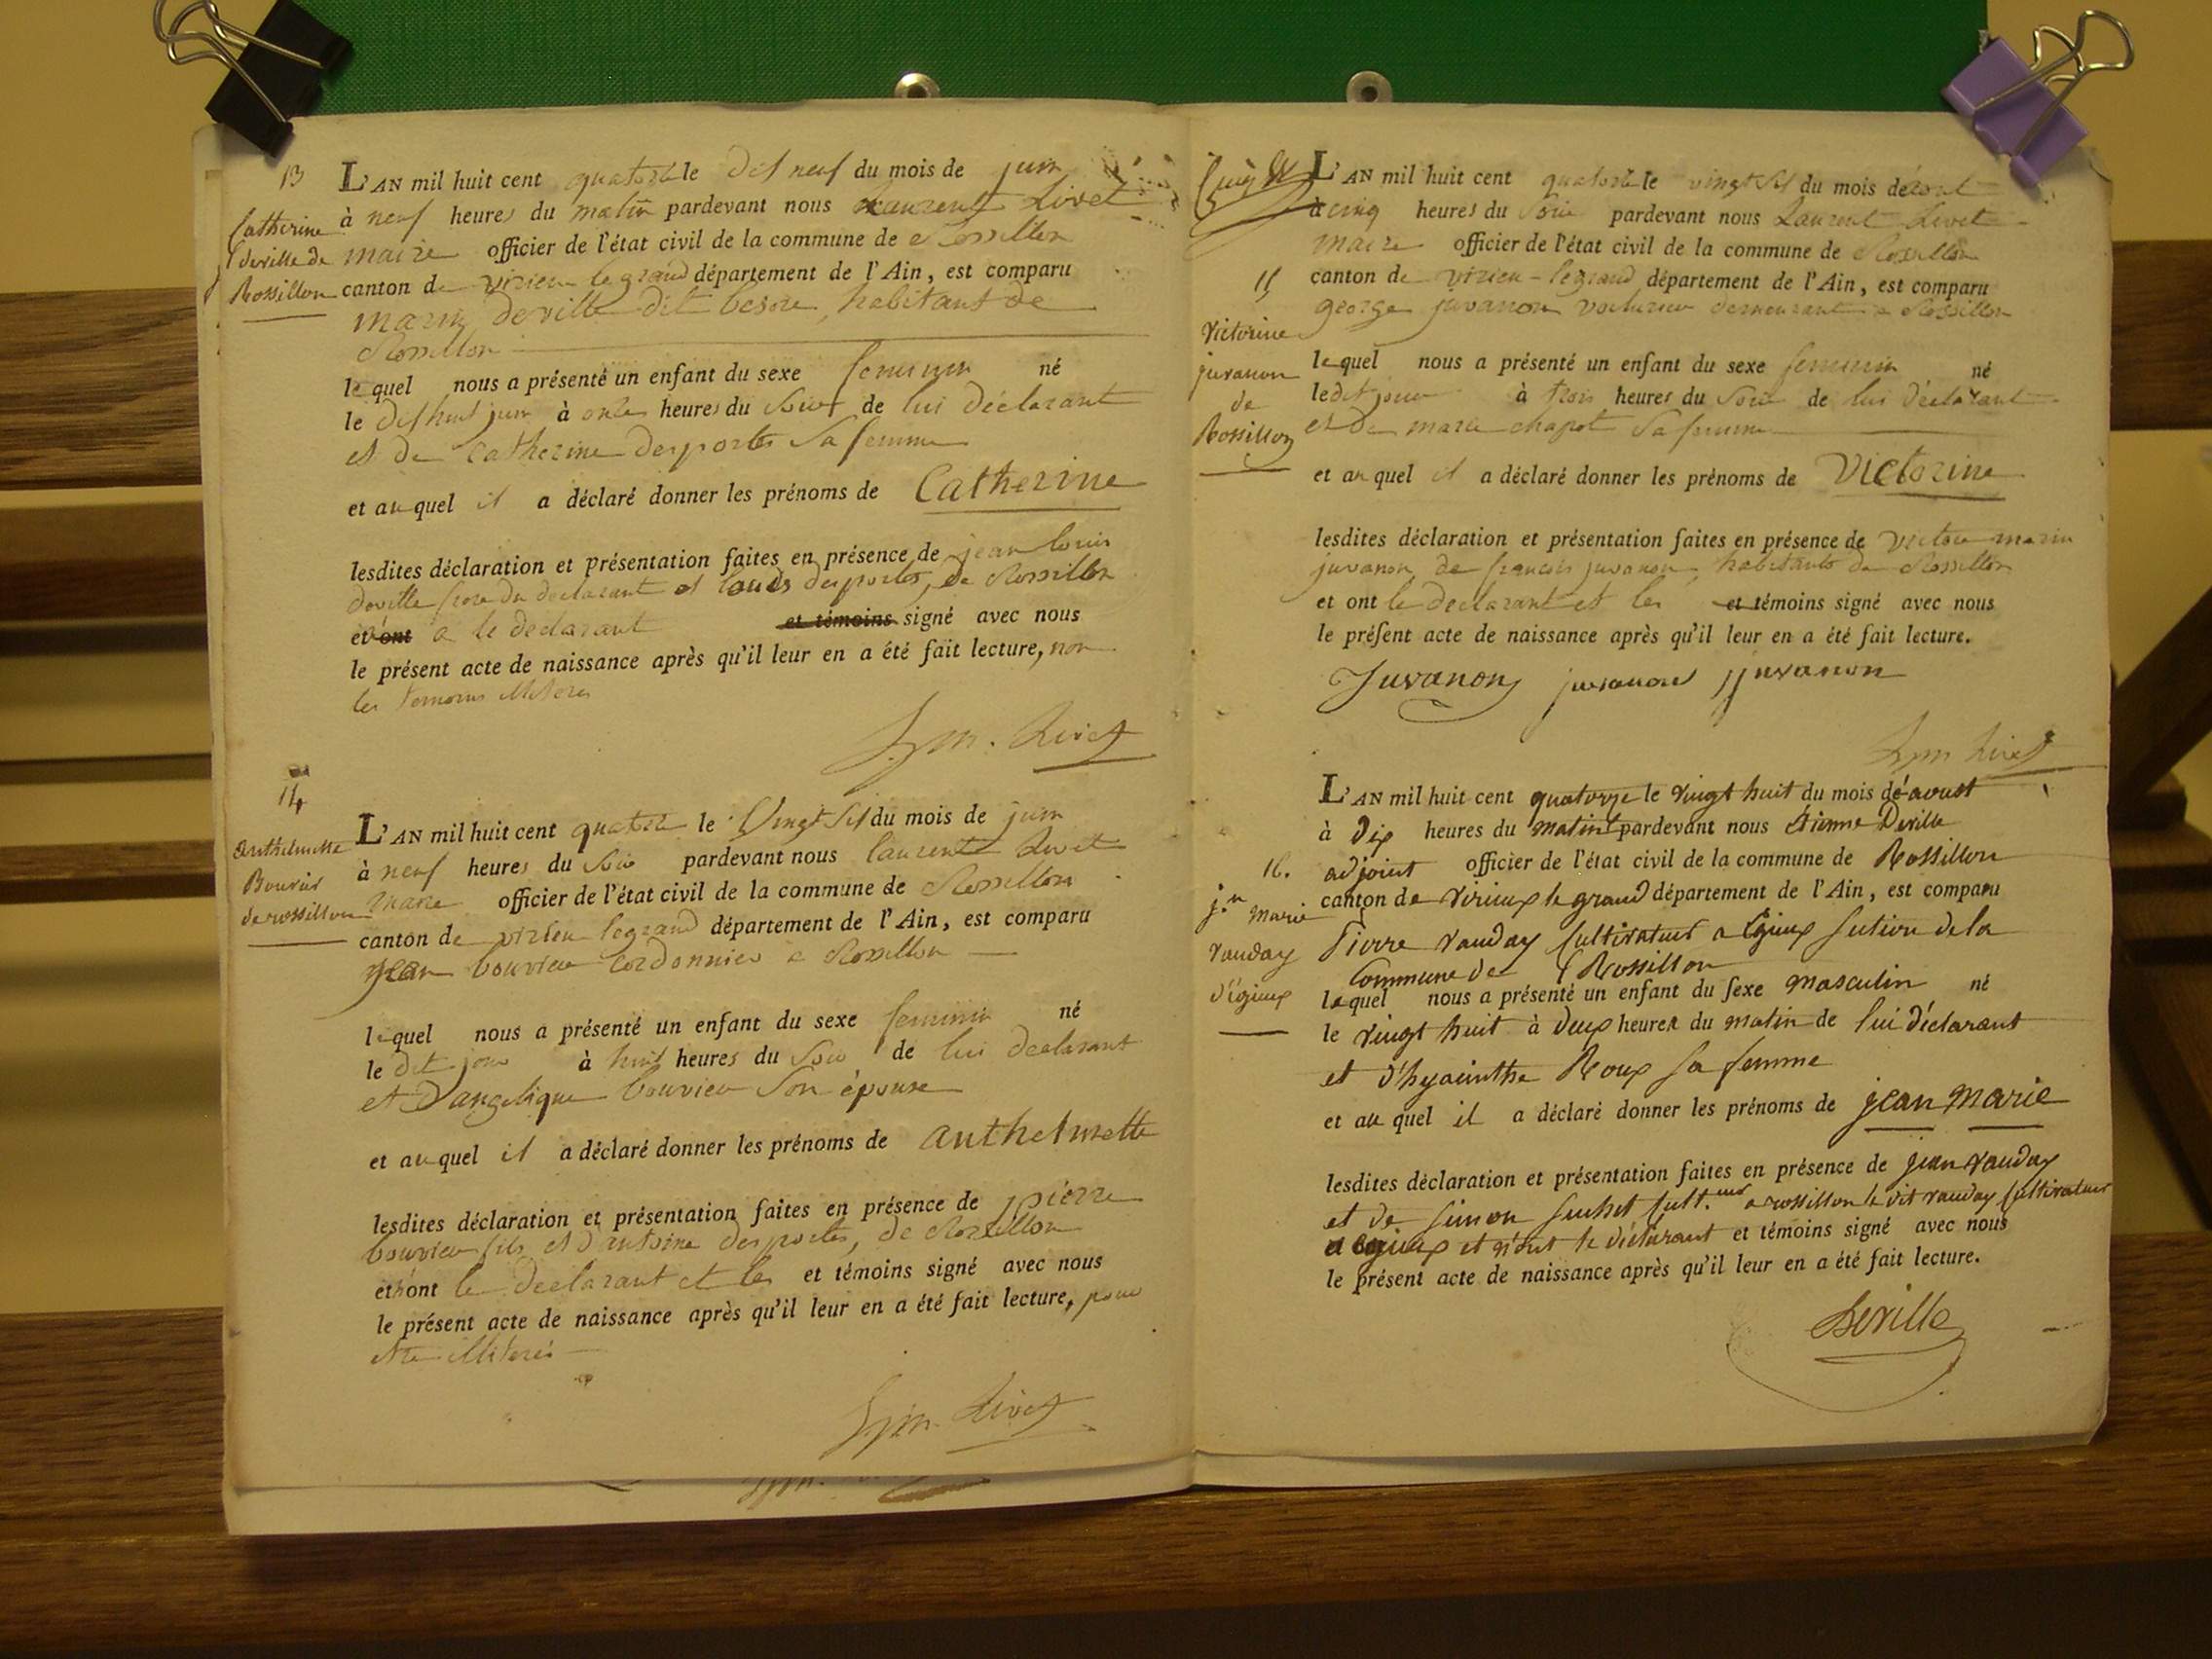 13
Catherine
deville de
Rossillon
L'AN mil huit cent quatorze le dix neuf du mois de juin
à neuf heures du matin pardevant nous Laurent Livet
maire officier de l'état civil de la commune de Rossillon
canton de virieu le grand département de l'Ain, est comparu
marin deville dit besore, habitant de
Rossillon
lequel nous a présenté un enfant du sexe feminin né
le dixhuit juin à onze heures du soir de lui déclarant
et de catherine desportes sa femme
et auquel il a déclaré donner les prénoms de Catherine
lesdites déclaration et présentation faites en présence de jean louis
deville frere du declarant et louis desportes, de Rossillon
et ont a le declarant et témoins signé avec nous
le présent acte de naissance après qu'il leur en a été fait lecture, non
les temoins illiteres
Livet
14
Anthelmette
Bouvier
de rossillon
L'AN mil huit cent quatorze le Vingt six du mois de juin
à neuf heures du soir pardevant nous laurent Livet
maire officier de l'état civil de la commune de Rossillon
canton de virieu legrand département de l'Ain, est comparu
jean bouvier cordonnier a Rossillon
lequel nous a présenté un enfant du sexe feminin né
le dit jour à huit heures du soir de lui declarant
et d'angelique bouvier son épouse
et auquel il a déclaré donner les prénoms de anthelmette
lesdites déclaration et présentation faites en présence de pierre
bouvier fils et d'antoine desportes, de Rossillon
et n'ont le declarant et les et témoins signé avec nous
le présent acte de naissance après qu'il leur en a été fait lecture, pour
etre illiterés
Livet
15
Victorine
juvanon
de
Rossillon
L'AN mil huit cent quatorze le vingt six du mois de
à cinq heures du soir pardevant nous Laurent Livet
maire officier de l'état civil de la commune de Rossillon
canton de virieu-legrand département de l'Ain, est comparu
george juvanon voiturier demeurant a Rossillon
lequel nous a présenté un enfant du sexe feminin né
ledit jour à trois heures du soir de lui déclarant
et de marie chapot sa femme
et auquel il a déclaré donner les prénoms de Victorine
lesdites déclaration et présentation faites en présence de victor marin
juvanon, de francois juvanon, habitants de Rossillon
et ont le declarant et les et témoins signé avec nous
le présent acte de naissance après qu'il leur en a été fait lecture.
Juvanon juvanon jjuvanon
Livet
16.
j.n marie
vauday
d'égieux
L'AN mil huit cent quatorze le vingt huit du mois de aoust
à dix heures du matin pardevant nous étienne Deville
adjoint officier de l'état civil de la commune de Rossillon
canton de Virieux le grand département de l'Ain, est comparu
Pierre vauday Cultivateur a Egieux section de la
Commune de Rossillon
lequel nous a présenté un enfant du sexe masculin né
le vingt huit à deux heures du matin de lui déclarant
et d'hyacinthe Roux sa femme
et au quel il a déclaré donner les prénoms de jean marie
lesdites déclaration et présentation faites en présence de jean vauday
et de simon suchet cult.eur a rossillon le dit vauday Cultivateur
a egieux et n'ont le déclarant et témoins signé avec nous
le présent acte de naissance après qu'il leur en a été fait lecture.
Deville